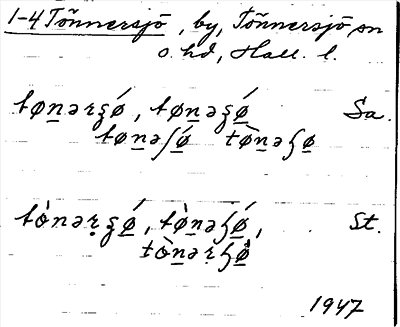 1-4 Tönnersjö, by, Tönnersjö sn
o. hd, Hall. l.
tøn̲ərʂǿ̲, tøn̲əʂǿ̲ Sa.
tøn̲əʃǿ̲ tø̀n̲əʂø̲
tònərʂǿ̲, tø̀n̲əʂǿ̲, St.
tòn̲ərʂǿ̲
1947